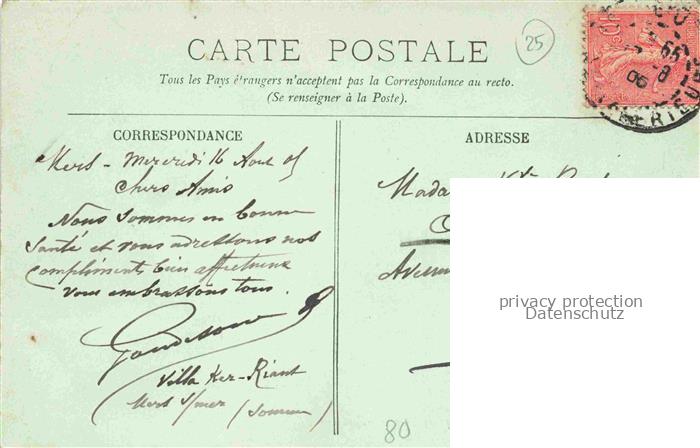 25
CARTE POSTALE
Tous les Pays étrangers n'acceptent pas la Correspondance au recto.
(Se renseigner à la Poste).
CORRESPONDANCE
ADRESSE
Mers - Mercredi 16 Aout 05
Chers Amis
Nous sommes en bonne
santé et vous adressons nos
compliments bien affectueux
vous embrassons tous.
Villa Ker-Riant
Mers s/mer (Somme)
80
privacy protection
Datenschutz